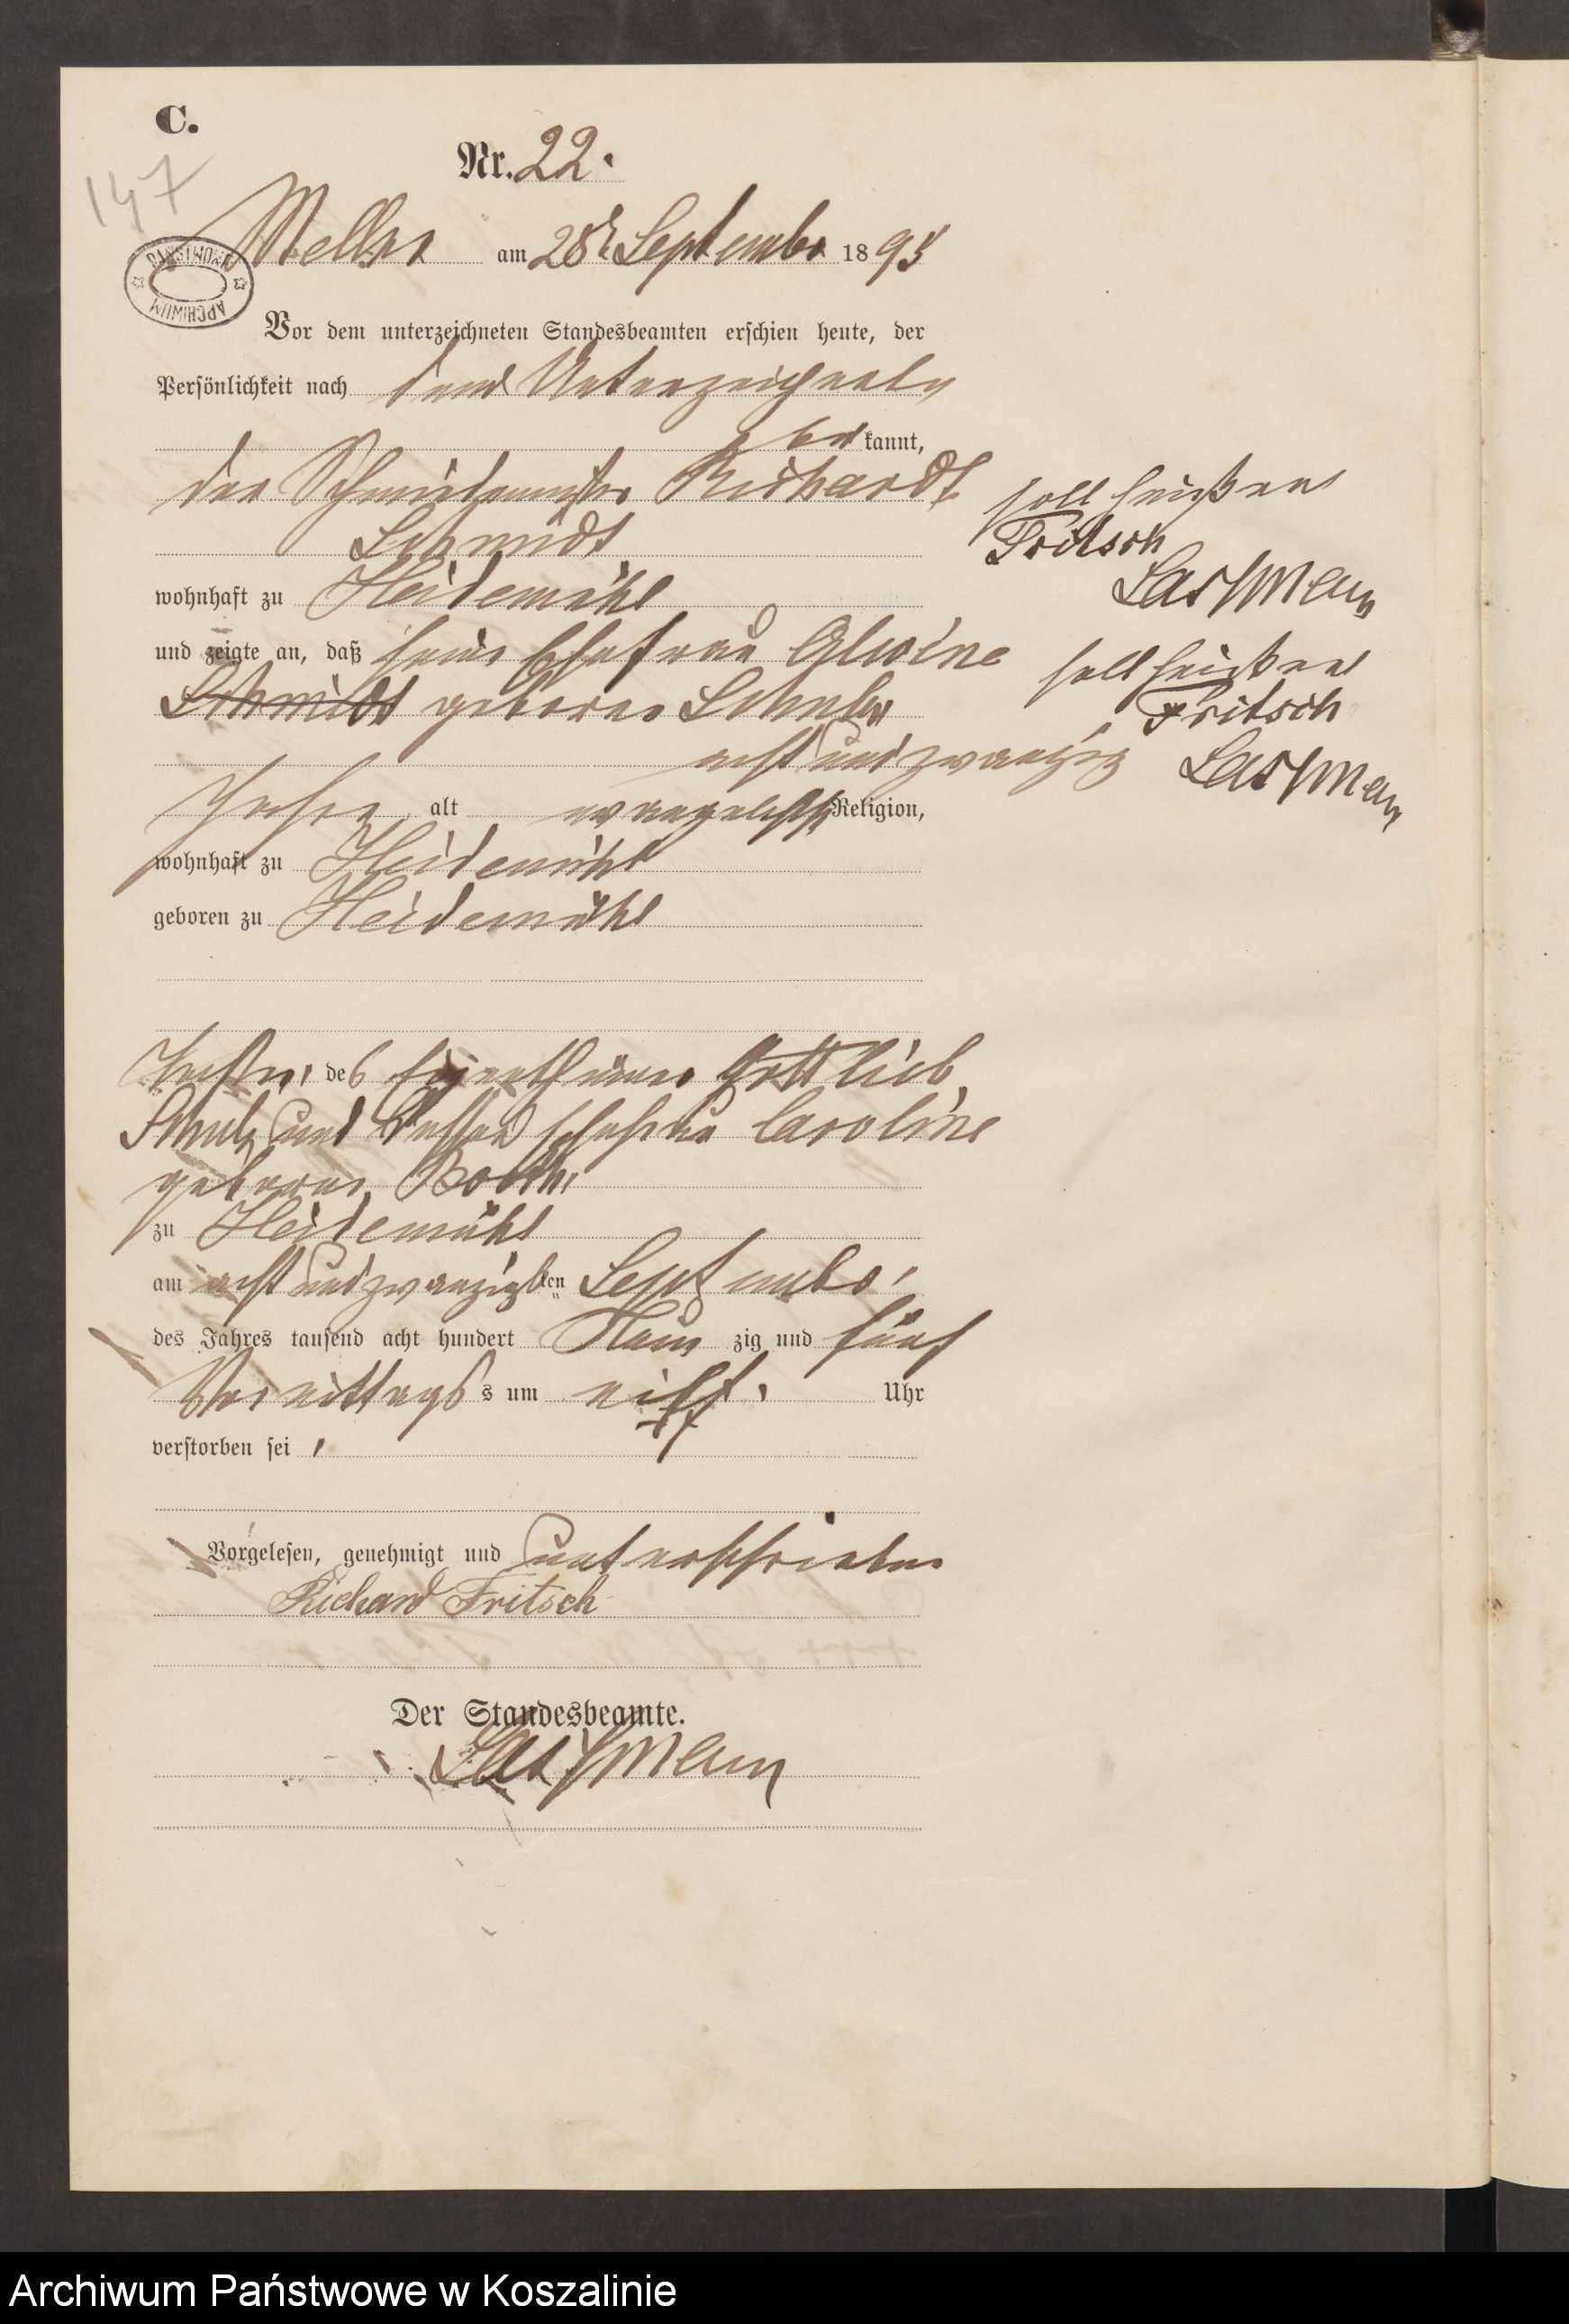 C.
147
Nr. 22.
am 28t September 1895
PAŃSTWOWE ARCHIWUM
Vor dem unterzeichneten Standesbeamten erschien heute, der
Persönlichkeit nach dem Unterzeichneten
be kannt,
der Schmiedemeister Richardt
soll heißen
Schmidt
Fritsch
wohnhaft zu Heidemühl
und zeigte an, daß seine Ehefrau Alwine
soll heißen
Schmidt geborene Schulz
Fritsch
acht und zwanzig
Jahre alt evangelisch Religion,
wohnhaft zu Heidemühl
geboren zu Heidemühl
Tochter des Eigenthümer Gottlieb
Schulz und dessen Ehefrau Caroline
geborene
zu Heidemühl
am acht und zwanzigsten September
des Jahres tausend acht hundert Neun zig und fünf
Vormittags s um Uhr
verstorben sei
Vorgelesen, genehmigt und unterschrieben
Richard Fritsch
Der Standesbeamte.
Archiwum Państwowe w Koszalinie